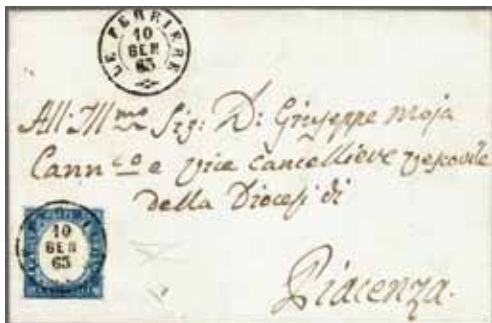 LE FERRIERE
10
GEN
63
All: Ill.mo Sig: D: Giuseppe Moja
Cann.co e vice cancelliere vescovile
della Diocesi di
10
GEN
63
Piacenza.